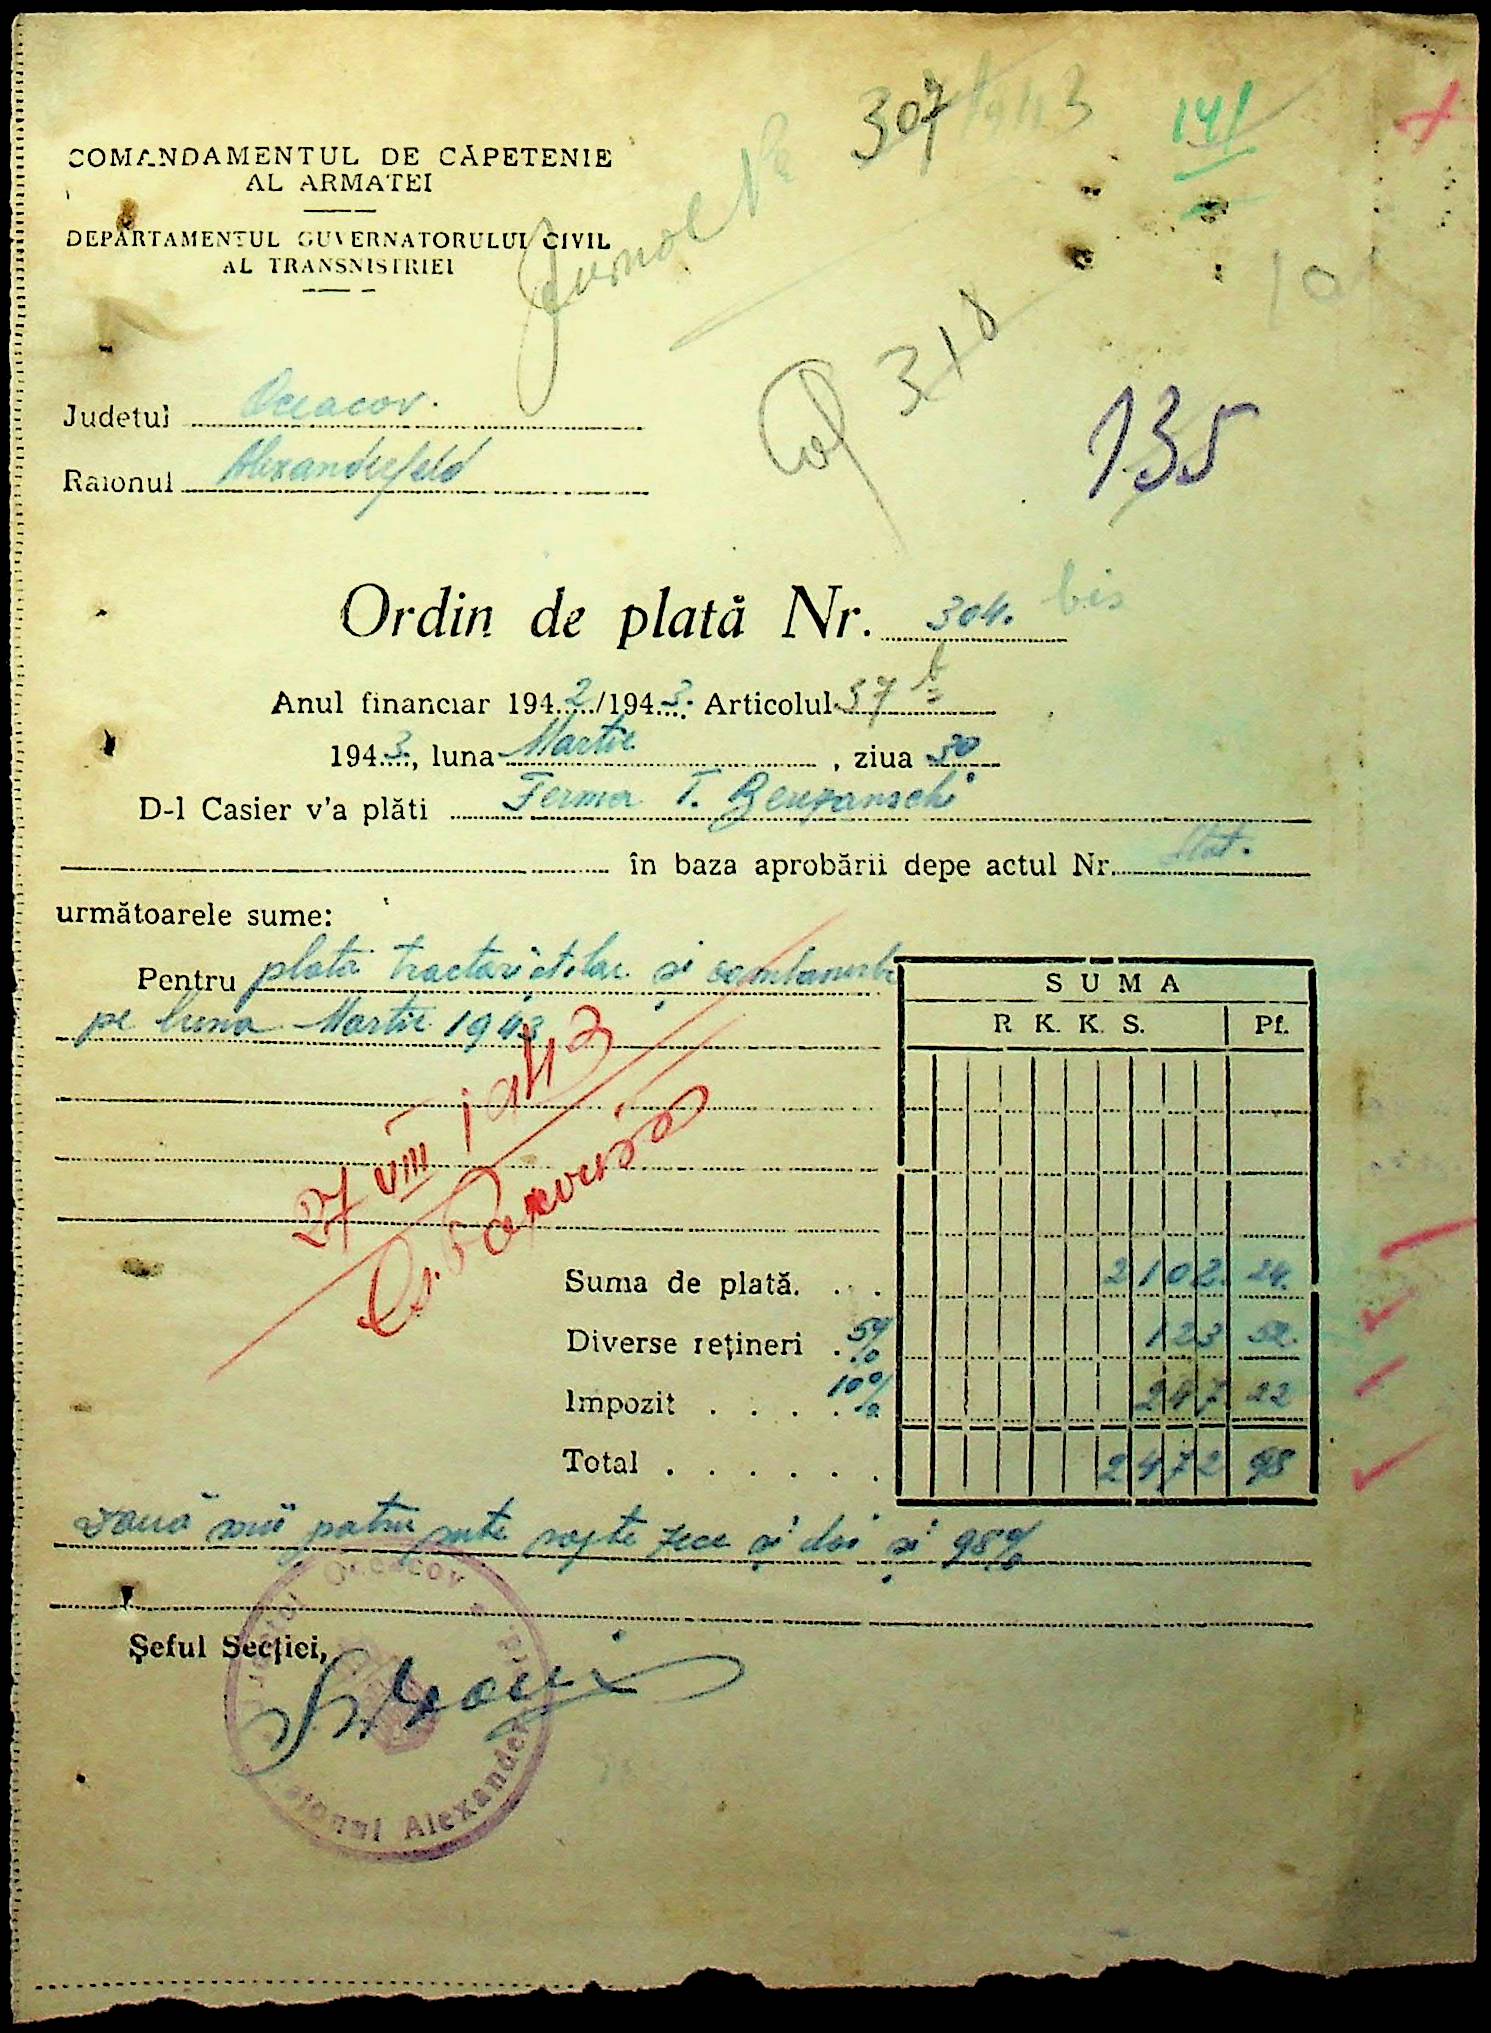 307/1943
141
COMANDAMENTUL DE CĂPETENIE
AL ARMATEI
DEPARTAMENTUL GUVERNATORULUI CIVIL
AL TRANSNISTRIEI
Jurnal No
310
135
Judetul Oceacov.
Raionul Alexanderfeld
Ordin de plată Nr. 304. bis
Anul financiar 1942/1943. Articolul 57
1943., luna Martie, ziua 30
D-l Casier v'a plăti Ferma T.
în baza aprobării depe actul Nr. Stat.
următoarele sume:
Pentru plata tractoriștilor și
pe luna Martie 1943
SUMA
R. K. K. S. Pf.
27 VIII 1943
Suma de plată. . . 2102. 24.
Diverse rețineri . 5% 123 52.
Impozit . . . . 10% 247. 22
Total . . . . . . 2472 98
Două mii patru sute șapte zece și doi și 98%
Șeful Secției,
Județul Oceacov
Raionul Alexander